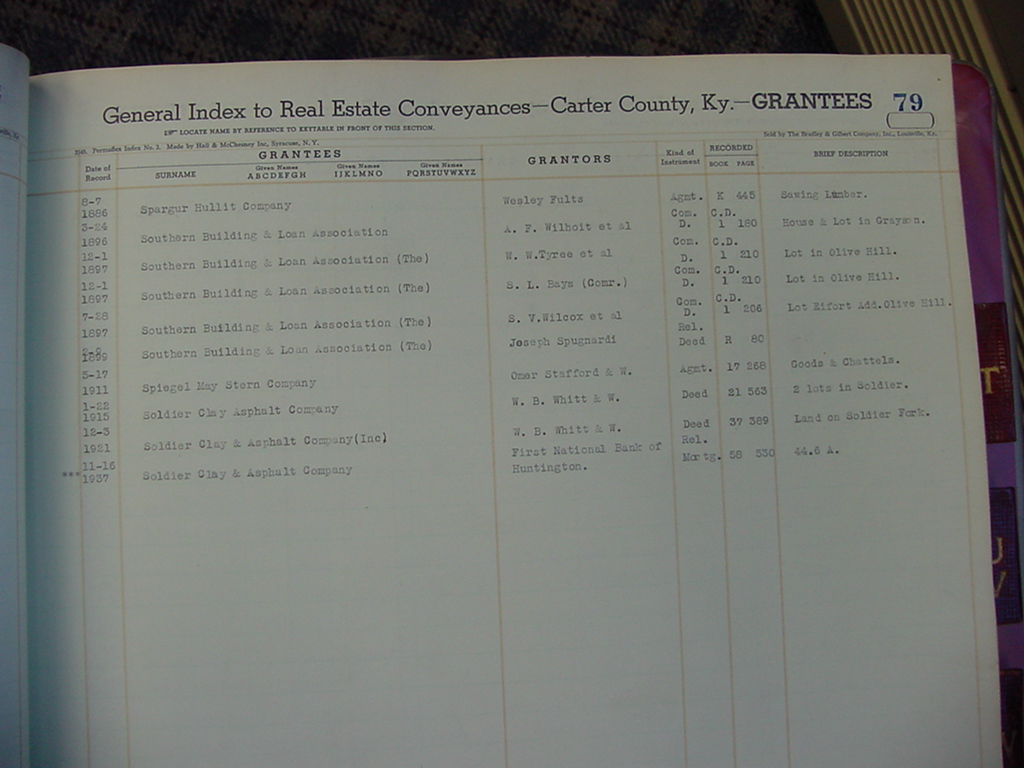 General Index to Real Estate Conveyances—Carter County, Ky.—GRANTEES 79
LOCATE NAME BY REFERENCE TO KEYTABLE IN FRONT OF THIS SECTION.
Made by Hall & McChesney Inc, Syracuse, N. Y.
Sold by The Bradley & Gilbert Company, Inc., Louisville, Ky.
Date of Record GRANTEES GRANTORS Kind of Instrument RECORDED BRIEF DESCRIPTION
SURNAME Given Names ABCDEFGH Given Names IJKLMNO Given Names PQRSTUVWXYZ BOOK PAGE
8-7 1886 Spargur Hullit Company Wesley Fults Agmt. K 445 Sawing Lumber.
3-24 1896 Southern Building & Loan Association A. F. Wilhoit et al Com. D. C.D. 1 180 House & Lot in Grayson.
12-1 1897 Southern Building & Loan Association (The) W. W.Tyree et al Com. D. C.D. 1 210 Lot in Olive Hill.
12-1 1897 Southern Building & Loan Association (The) S. L. Bays (Comr.) Com. D. C.D. 1 210 Lot in Olive Hill.
7-28 1897 Southern Building & Loan Association (The) S. V.Wilcox et al Com. D. C.D. 1 206 Lot Eifort Add.Olive Hill.
1899 Southern Building & Loan Association (The) Joseph Spugnardi Rel. Deed R 80
5-17 1911 Spiegel May Stern Company Omar Stafford & W. Agmt. 17 268 Goods & Chattels.
1-22 1915 Soldier Clay Asphalt Company W. B. Whitt & W. Deed 21 563 2 lots in Soldier.
12-3 1921 Soldier Clay & Asphalt Company(Inc) W. B. Whitt & W. Deed 37 389 Land on Soldier Fork.
***11-16 1937 Soldier Clay & Asphalt Company First National Bank of Huntington. Rel. Mortg. 58 530 44.6 A.
T
U
V
W